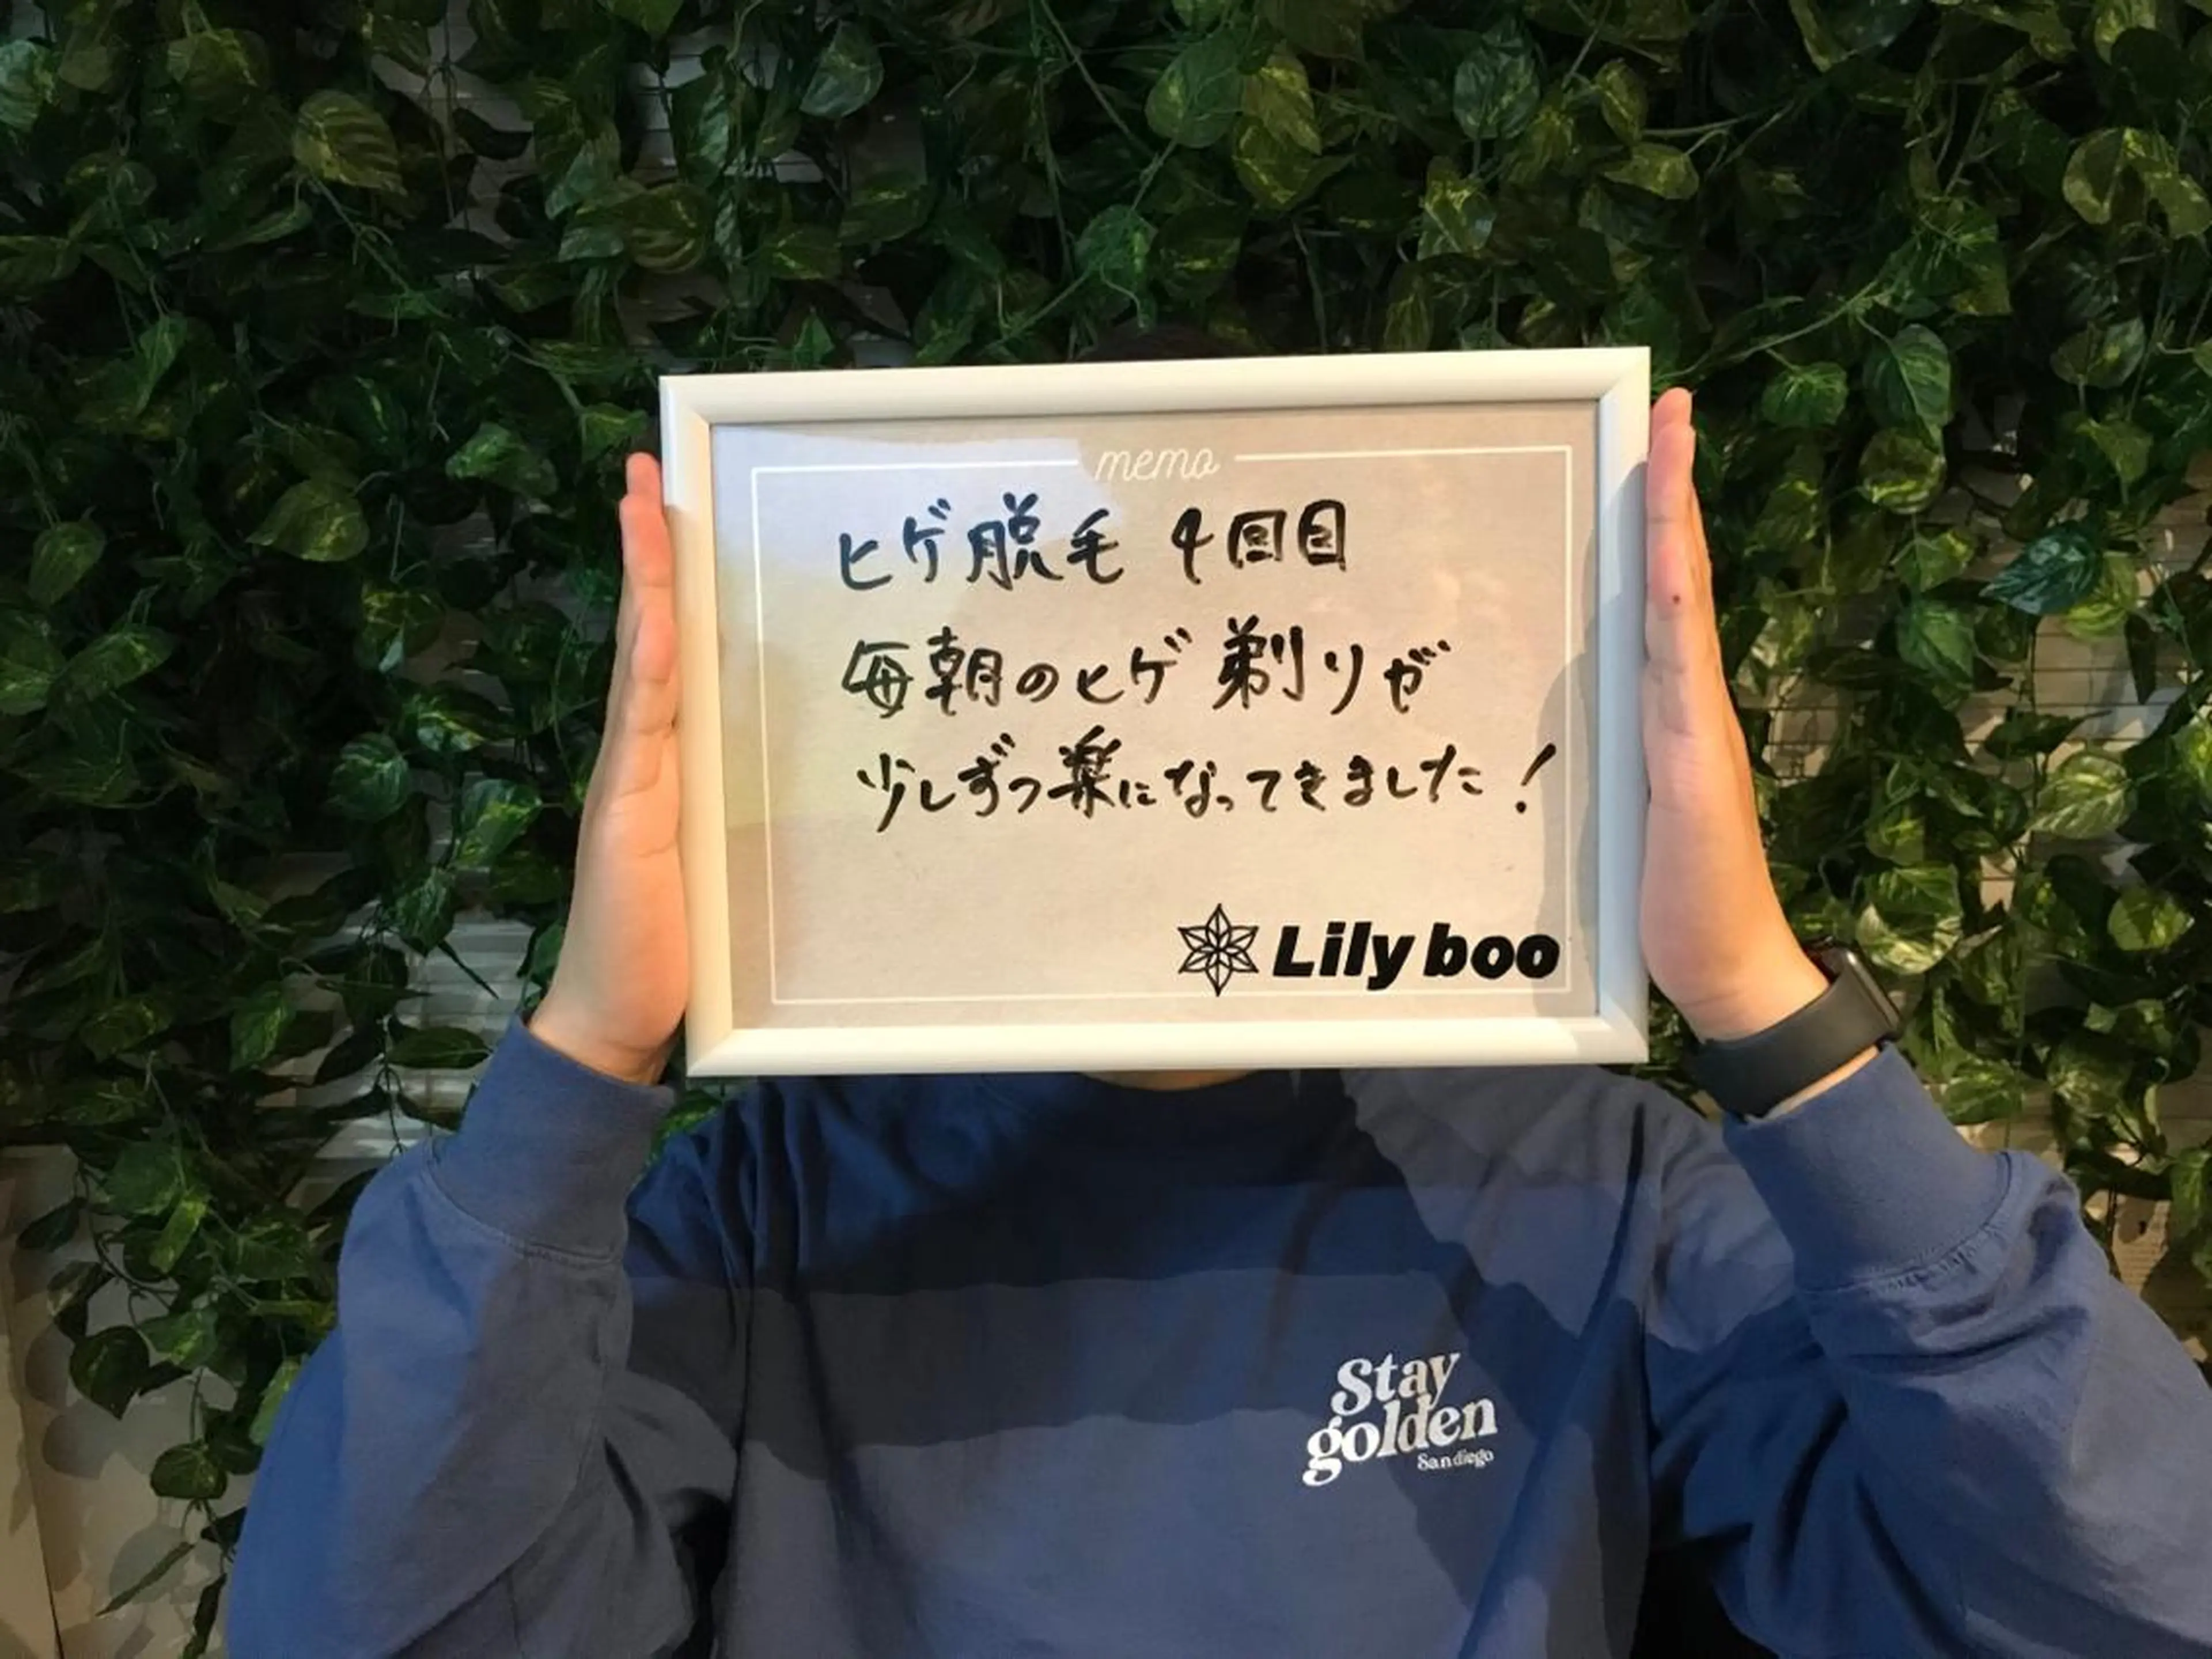 memo
ヒゲ脱毛 4回目
毎朝のヒゲ剃りが
少しずつ楽になってきました!
Lily boo
Stay
golden
San diego